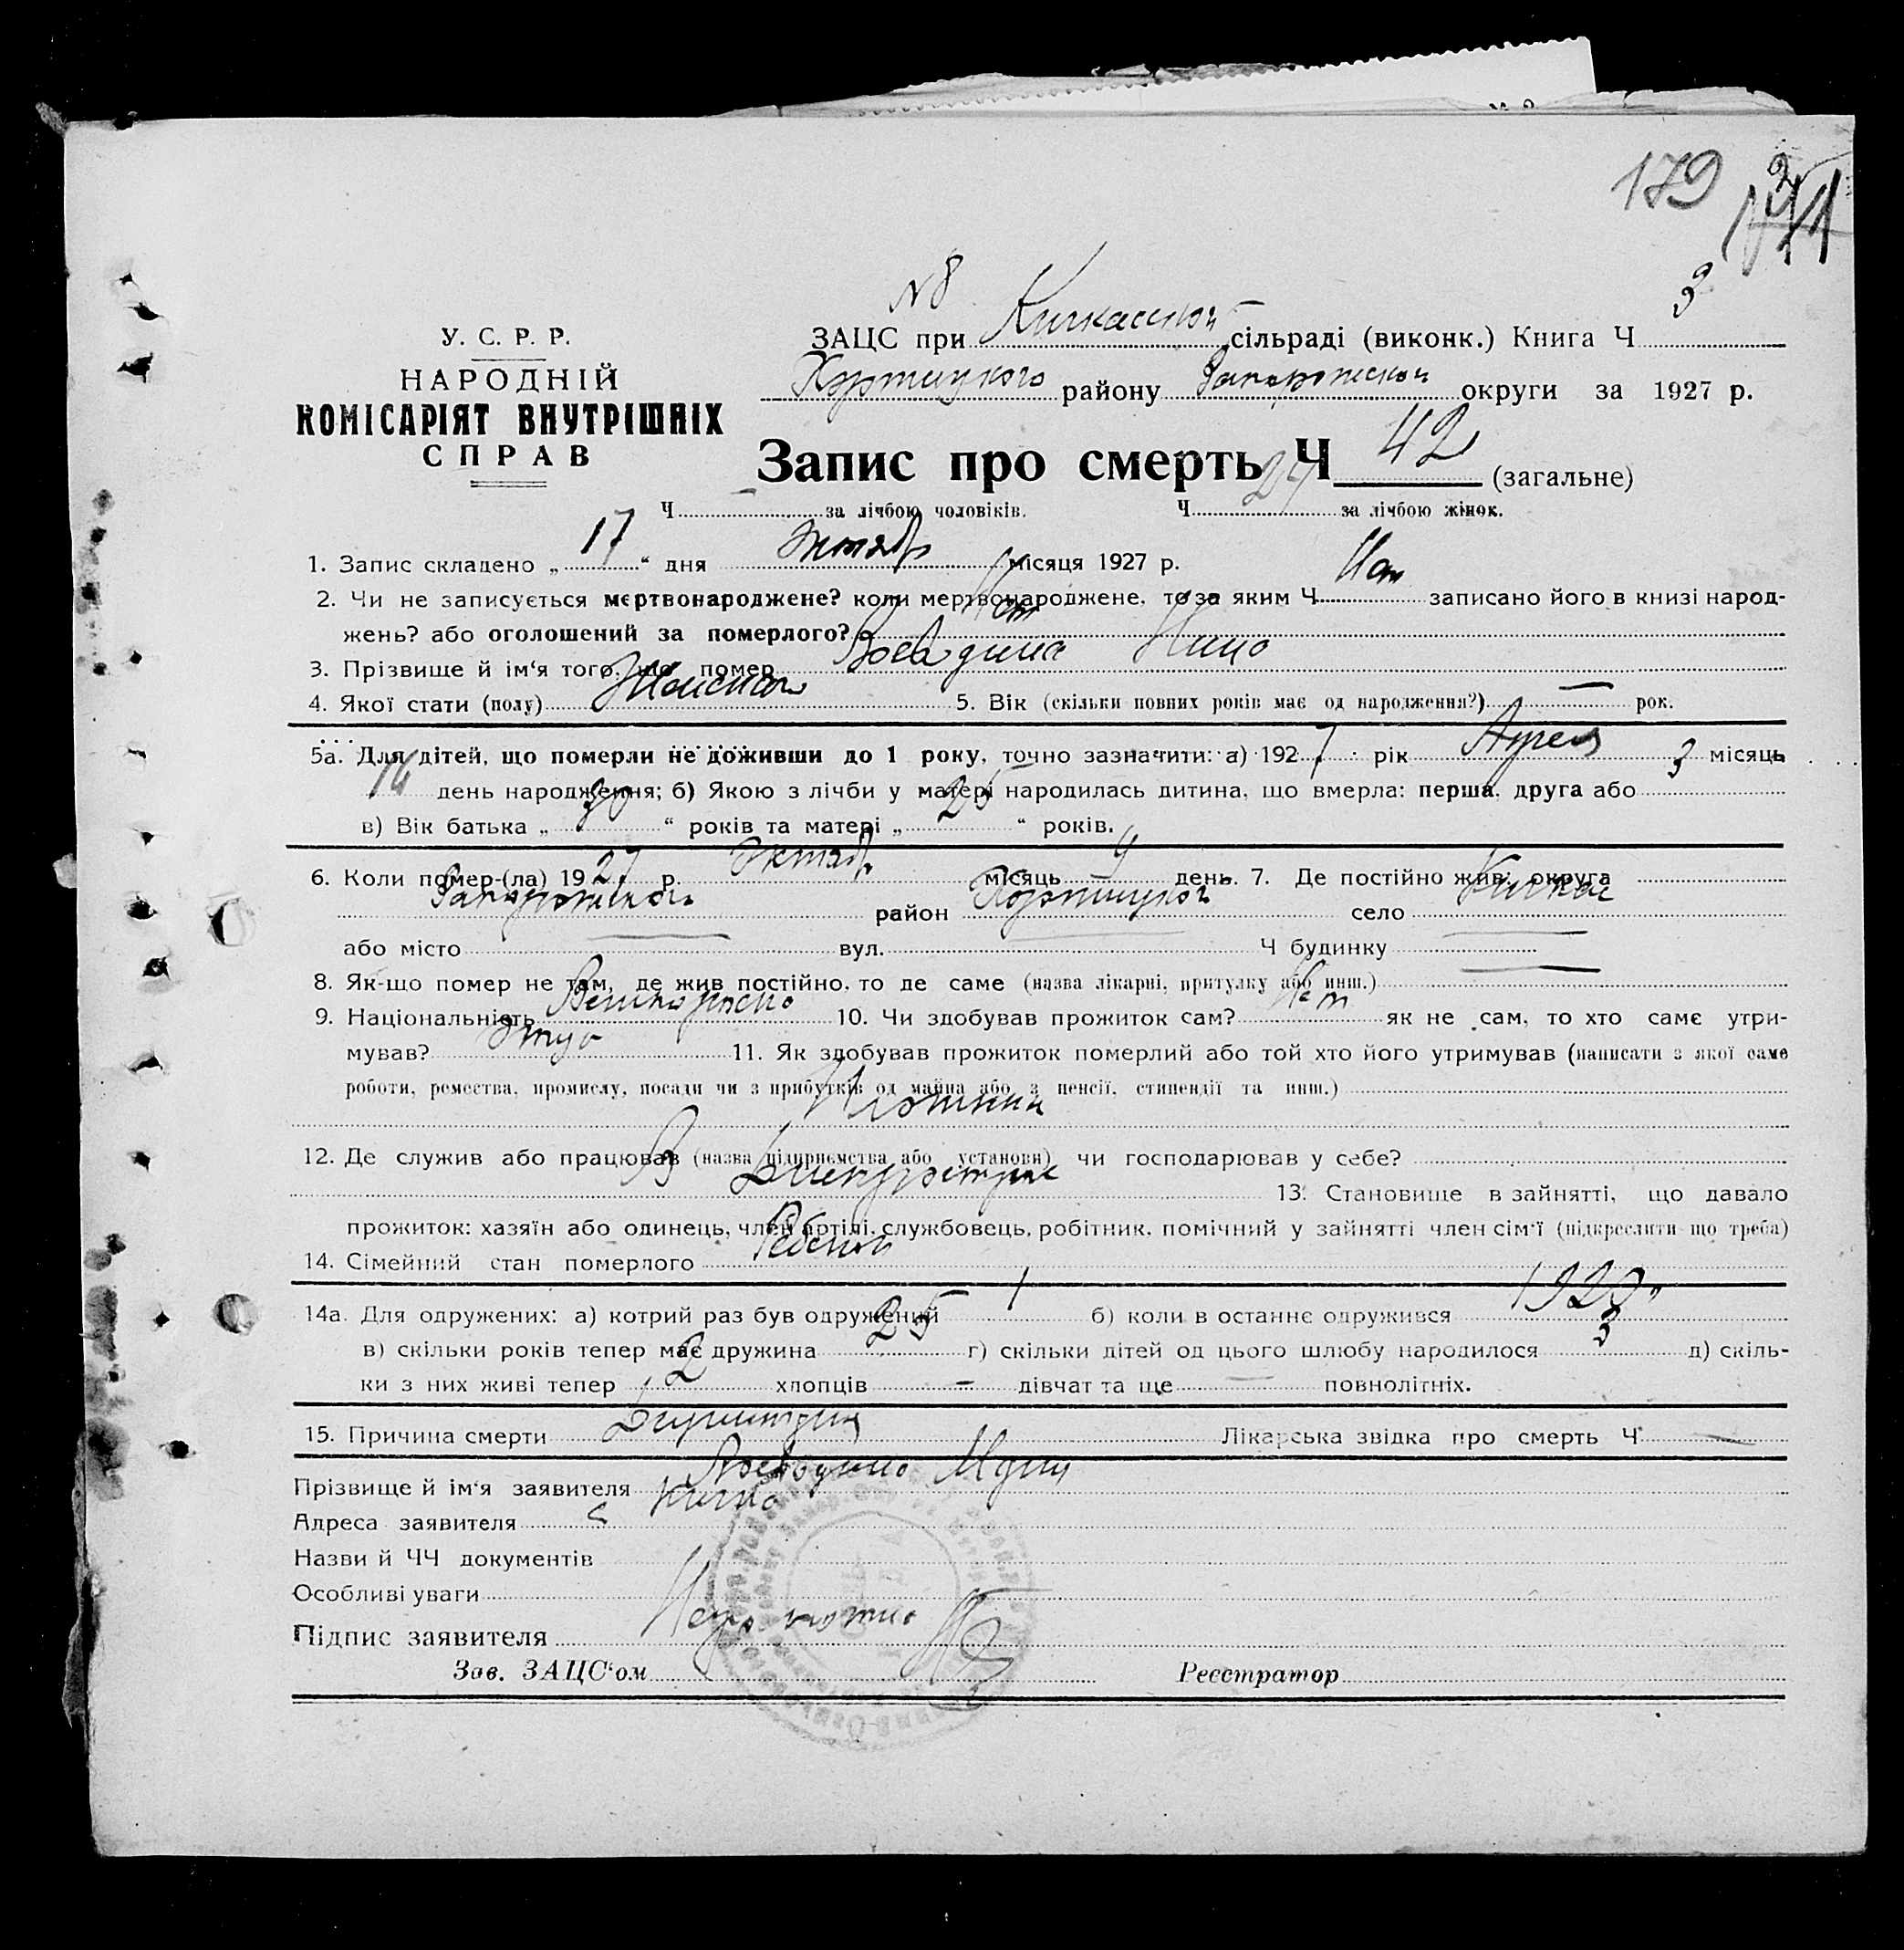 179
№ 8
У. С. Р. Р.
НАРОДНІЙ
КОМІСАРІЯТ ВНУТРІШНІХ
СПРАВ
ЗАЦС при Кичкасской сільраді (виконк.) Книга Ч 3
Хортицкого району Запорожской округи за 1927 р.
Запис про смерть Ч 42 (загальне)
Ч за лічбою чоловіків. Ч 24 за лічбою жінок.
1. Запис складено „ 17 “ дня Октяб місяця 1927 р.
2. Чи не записується мертвонароджене? коли мертвонароджене, то за яким Ч Нет записано його в книзі народ-
жень? або оголошений за померлого? Нет
3. Прізвище й ім‘я того, що помер Воеводина Нина
4. Якої стати (полу) Женская 5. Вік (скільки повних років має од народження?) — рок.
5а. Для дітей, що померли не доживши до 1 року, точно зазначити: а) 1927 рік Апрель місяць
14 день народження; б) Якою з лічби у матері народилась дитина, що вмерла: перша, друга або 3
в) Вік батька „ 30 “ років та матері „ 25 “ років.
6. Коли помер-(ла) 1927 р. Октяб місяць 9 день. 7. Де постійно жив: округа
Запорожской район Хортицкой село Кичкас
або місто — вул. — Ч будинку —
8. Як-що помер не там, де жив постійно, то де саме (назва лікарні, притулку або инш.) —
9. Національність Великоросс 10. Чи здобував прожиток сам? Нет як не сам, то хто саме утри-
мував? Отец 11. Як здобував прожиток померлий або той хто його утримував (написати з якої саме
роботи, ремества, промислу, посади чи з прибутків од майна або з пенсії, стипендії та инш.)
Плотник
12. Де служив або працював (назва підприємства або установи) чи господарював у себе?
В Днепрострое 13. Становище в зайнятті, що давало
прожиток: хазяїн або одинець, член артілі, службовець, робітник, помічний у зайнятті член сім‘ї (підкреслити що треба)
14. Сімейний стан померлого Ребенок
14а. Для одружених: а) котрий раз був одружений 1 б) коли в останнє одружився 1920
в) скільки років тепер має дружина 25 г) скільки дітей од цього шлюбу народилося 3 д) скіль-
ки з них живі тепер 2 хлопців — дівчат та ще — повнолітніх.
15. Причина смерти Дизентерия Лікарська звідка про смерть Ч —
Прізвище й ім‘я заявителя
Адреса заявителя с Кичкас
Назви й ЧЧ документів
Особливі уваги
Підпис заявителя Неграмотна
Зав. ЗАЦС‘ом Реєстратор